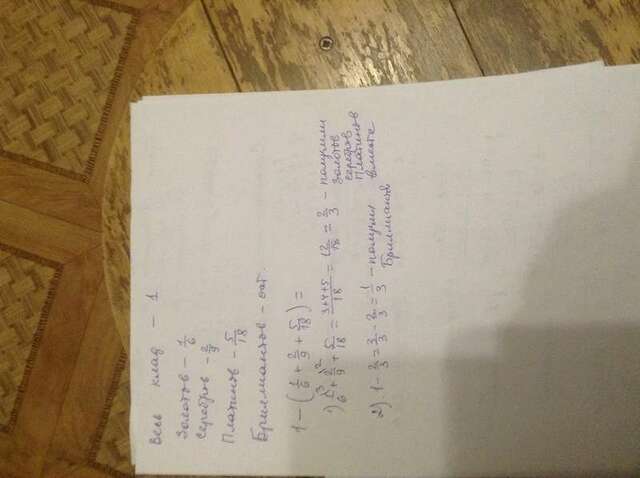 Весь клад - 1
Золотов - 1/6
Серебров - 2/9
Платинов - 5/18
Бриллиантов - ост.
1 - (1/6 + 2/9 + 5/18) =
1) 1/6 ³ + 2/9 ² + 5/18 = 3+4+5/18 = 12/18 = 2/3 - получили
Золотов
Серебров
Платинов
вместе
2) 1 - 2/3 = 3/3 - 2/3 = 1/3 - получил
Бриллиантов